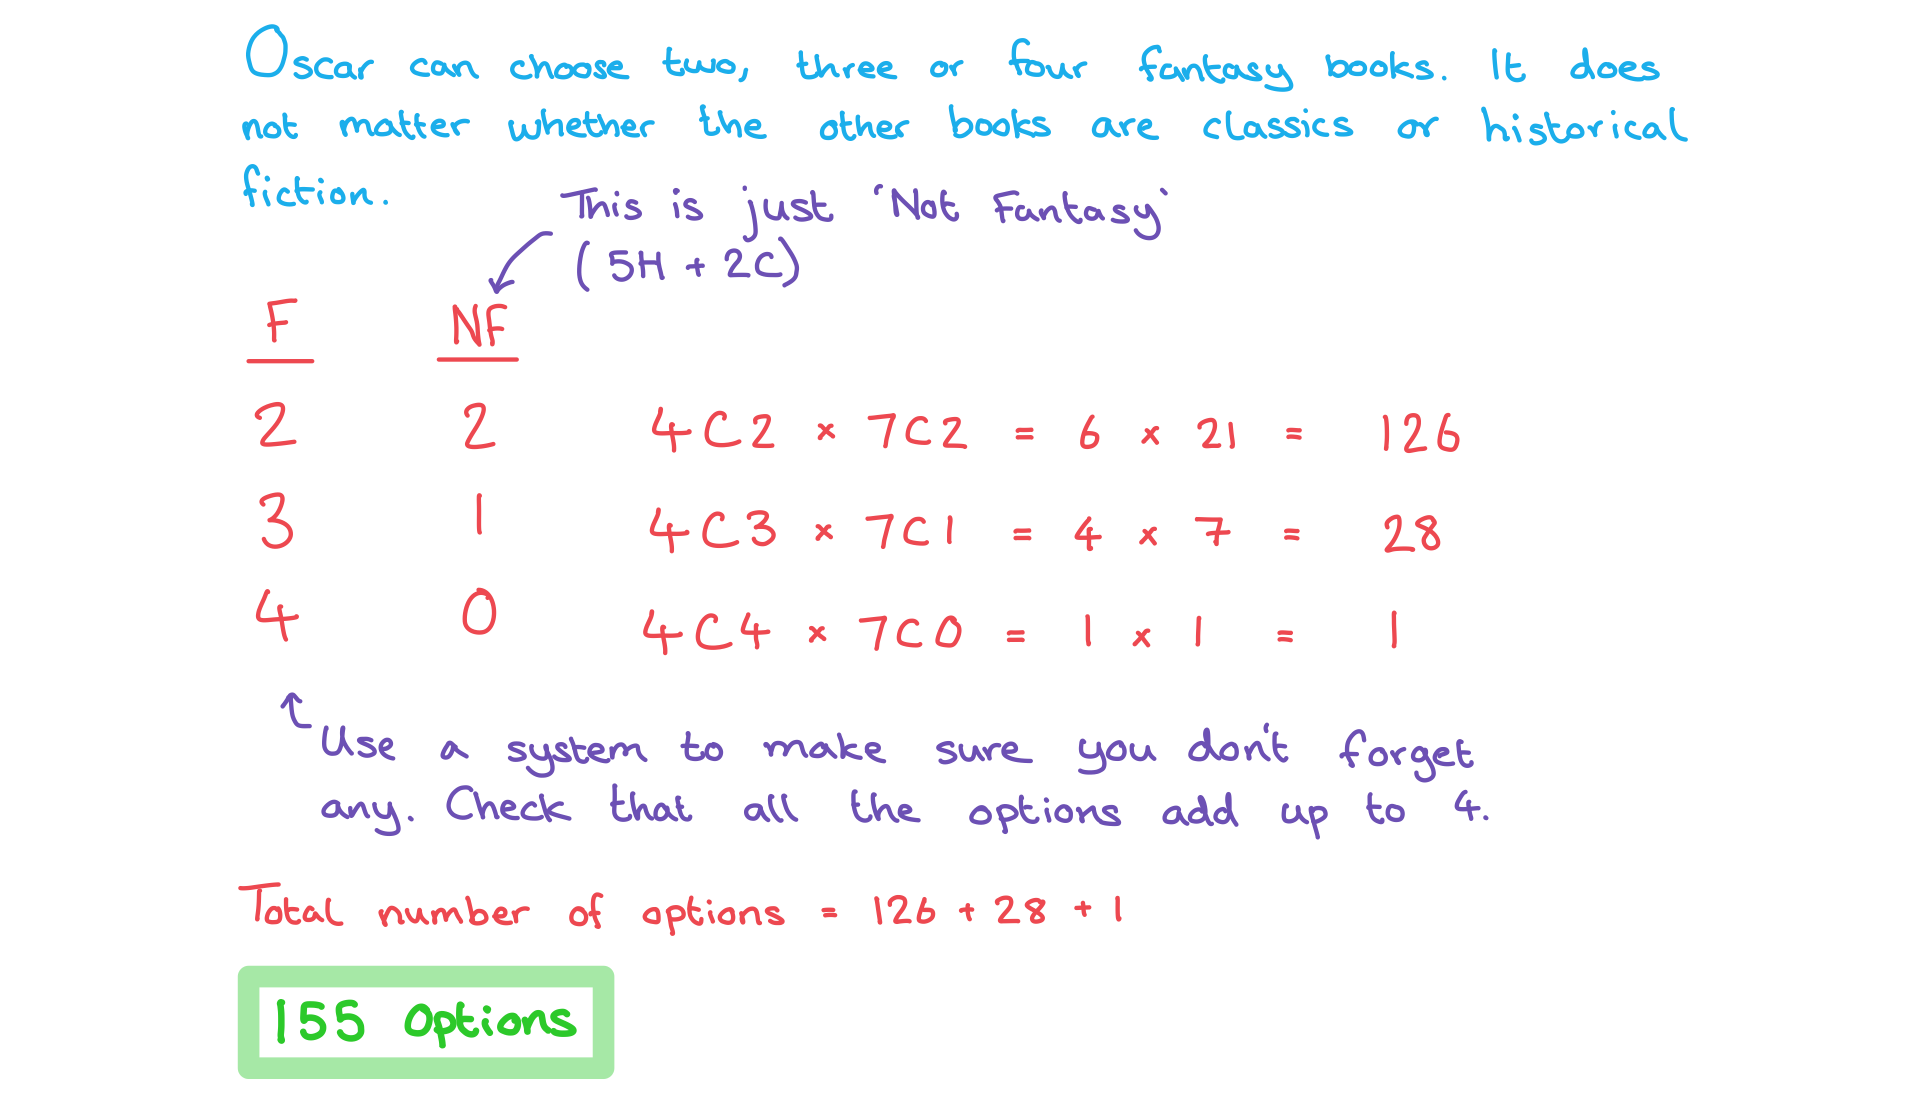 Oscar can choose two, three or four fantasy books. It does
not matter whether the other books are classics or historical
fiction.
This is just 'Not Fantasy'
(5H + 2C)
F NF
2 2 4C2 × 7C2 = 6 × 21 = 126
3 1 4C3 × 7C1 = 4 × 7 = 28
4 0 4C4 × 7C0 = 1 × 1 = 1
Use a system to make sure you don't forget
any. Check that all the options add up to 4.
Total number of options = 126 + 28 + 1
155 Options